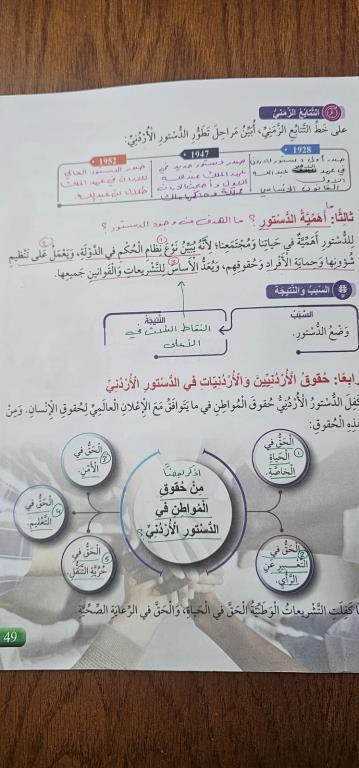 التتابع الزمني
على خط التتابع الزمني، أبين مراحل تطور الدستور الأردني:
1928
1947
1952
صدر أول دستور للأردن في عهد عبد الله الأول القانون الأساسي
صدر دستور جديد في عهد الملك عبد الله الأول وأصبحت الأردن مملكة وحاكمها ملك
صدر الدستور الحالي للأردن في عهد الملك طلال بن عبد الله
ثالثًا: أهمية الدستور ؟ ما الهدف من وجود الدستور ؟
للدستور أهمية في حياتنا ومجتمعنا؛ لأنه يبين نوع نظام الحكم في الدولة، ويعمل على تنظيم
شؤونها وحماية الأفراد وحقوقهم، ويعد الأساس للتشريعات والقوانين جميعها.
السبب والنتيجة
السبب
وضع الدستور.
النتيجة
النقاط الثلاث في الأعلى
رابعًا: حقوق الأردنيين والأردنيات في الدستور الأردني
كفل الدستور الأردني حقوق المواطن في ما يتوافق مع الإعلان العالمي لحقوق الإنسان. ومن
هذه الحقوق:
اذكر بعضًا
من حقوق
المواطن في
الدستور الأردني ؟
1 الحق في
الحياة
الخاصة.
2 الحق في
التعبير عن
الرأي.
3 الحق في
الأمن.
4 الحق في
التعليم.
5 الحق في
حرية التنقل.
كما كفلت التشريعات الوطنية الحق في الحياة، والحق في الرعاية الصحية.
49